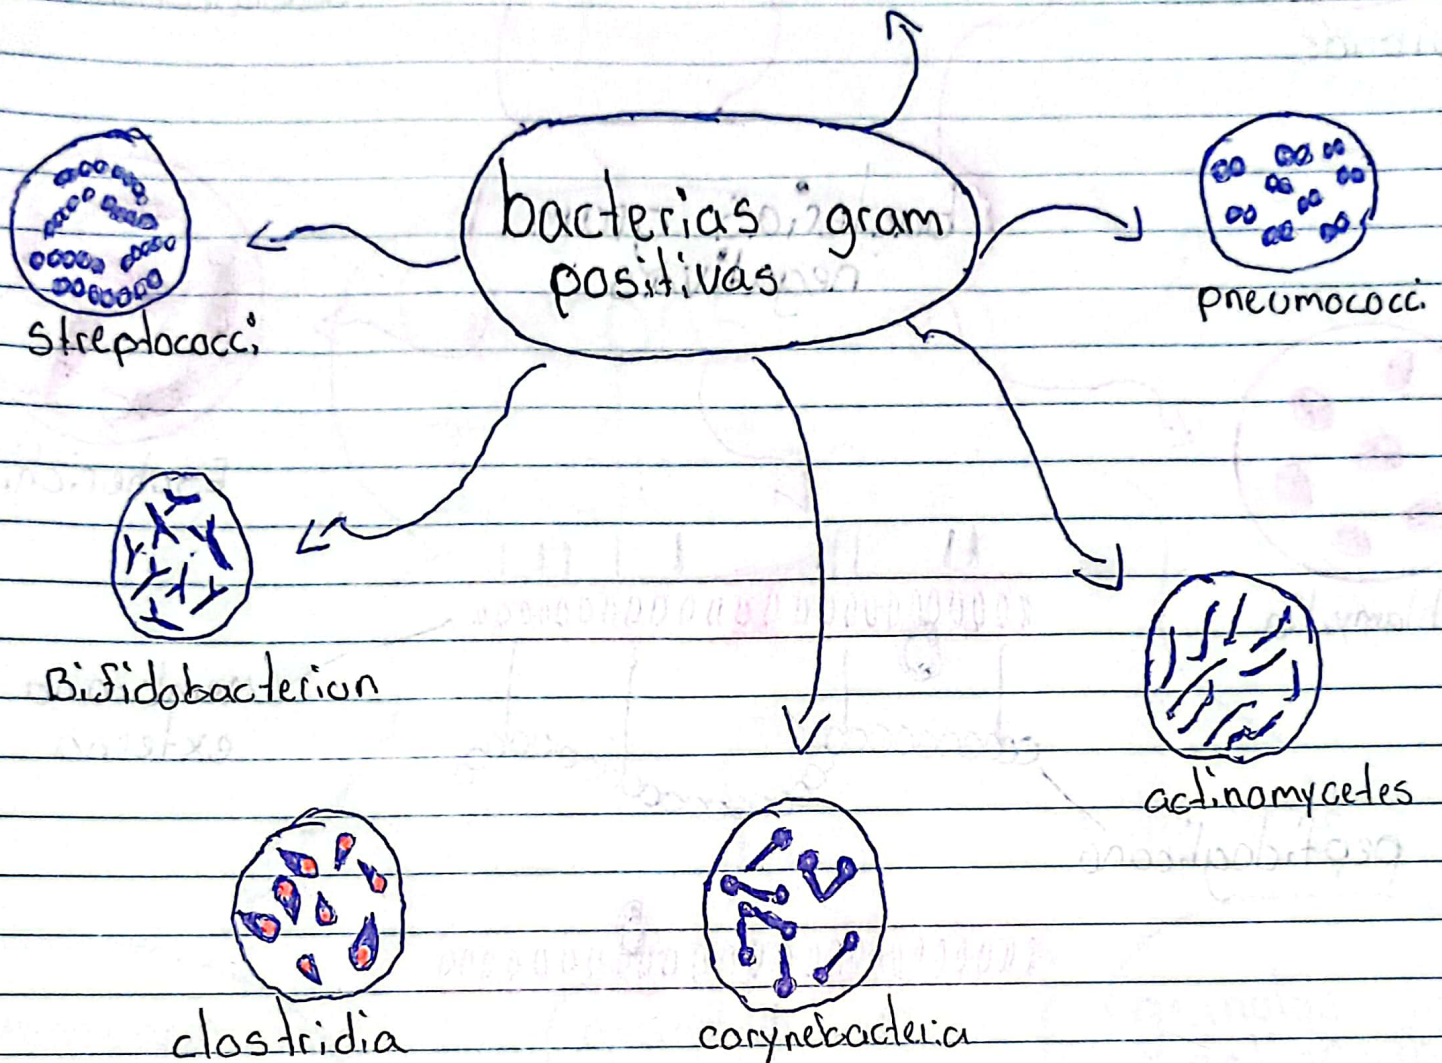 bacterias gram
positivas
streptococci
pneumococci
Bifidobacterion
actinomycetes
clostridia
corynebacteria